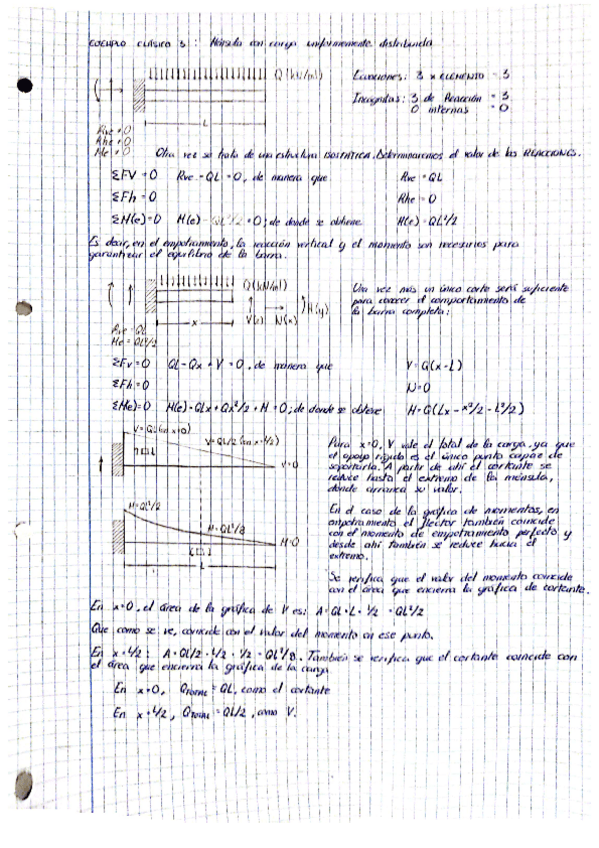 EJEMPLO CLÁSICO 3: Ménsula con carga uniformemente distribuida
Q (kN/ml)
Ecuaciones: 3 x ELEMENTO = 3
Incógnitas: 3 de Reacción = 3
0 internas = 0
L
Rve ≠ 0
Rhe ≠ 0
Me ≠ 0
Otra vez se trata de una estructura ISOSTÁTICA. Determinaremos el valor de las REACCIONES.
ΣFV = 0 Rve - QL = 0, de manera que Rve = QL
ΣFh = 0 Rhe = 0
ΣM(e) = 0 M(e) - QL²/2 = 0; de donde se obtiene M(e) = QL²/2
Es decir, en el empotramiento, la reacción vertical y el momento son necesarios para
garantizar el equilibrio de la barra.
Q (kN/ml)
Una vez más un único corte será suficiente
para conocer el comportamiento de
la barra completa:
x
N(x)
Rve = QL
Me = QL²/2
ΣFv = 0 QL - Qx + V = 0, de manera que V = Q(x-L)
ΣFh = 0 N = 0
ΣM(e) = 0 M(e) - QLx + Qx²/2 + M = 0; de donde se obtiene M = Q(Lx - x²/2 - L²/2)
V = QL (en x=0)
V = QL/2 (en x=L/2)
V=0
Para x=0, V vale el total de la carga, ya que
el apoyo rígido es el único punto capaz de
soportarla. A partir de ahí el cortante se
reduce hasta el extremo de la ménsula,
donde arranca su valor.
M = QL²/2
M = QL²/8
M=0
L
En el caso de la gráfica de momentos, en
empotramiento el flector también coincide
con el momento de empotramiento perfecto y
desde ahí también se reduce hacia el
extremo.
Se verifica que el valor del momento coincide
con el área que encierra la gráfica de cortante.
En x=0, el área de la gráfica de V es: A = QL · L · 1/2 = QL²/2
Que como se ve, coincide con el valor del momento en ese punto.
En x = L/2: A = QL/2 · L/2 · 1/2 = QL²/8. También se verifica que el cortante coincide con
el área que encierra la gráfica de la carga.
En x=0, QTOTAL = QL, como el cortante
En x = L/2, QTOTAL = QL/2, como V.